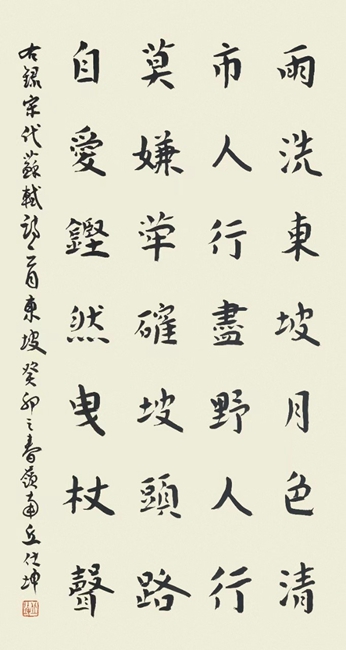 雨洗東坡月色清
市人行盡野人行
莫嫌荦確坡頭路
自愛鏗然曳杖聲
右録宋代蘇軾詩一首東坡癸卯之春嶺南丘仕坤